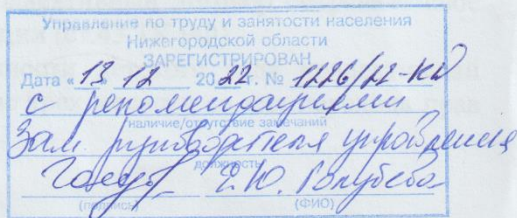 Управление по труду и занятости населения
Нижегородской области
ЗАРЕГИСТРИРОВАН
Дата «13 12 2022 г. № 1226/22-КД
с рекомендациями
наличие/отсутствие замечаний
Зам. руководителя управления
должность
Е.Ю. Голубева
(подпись) (ФИО)